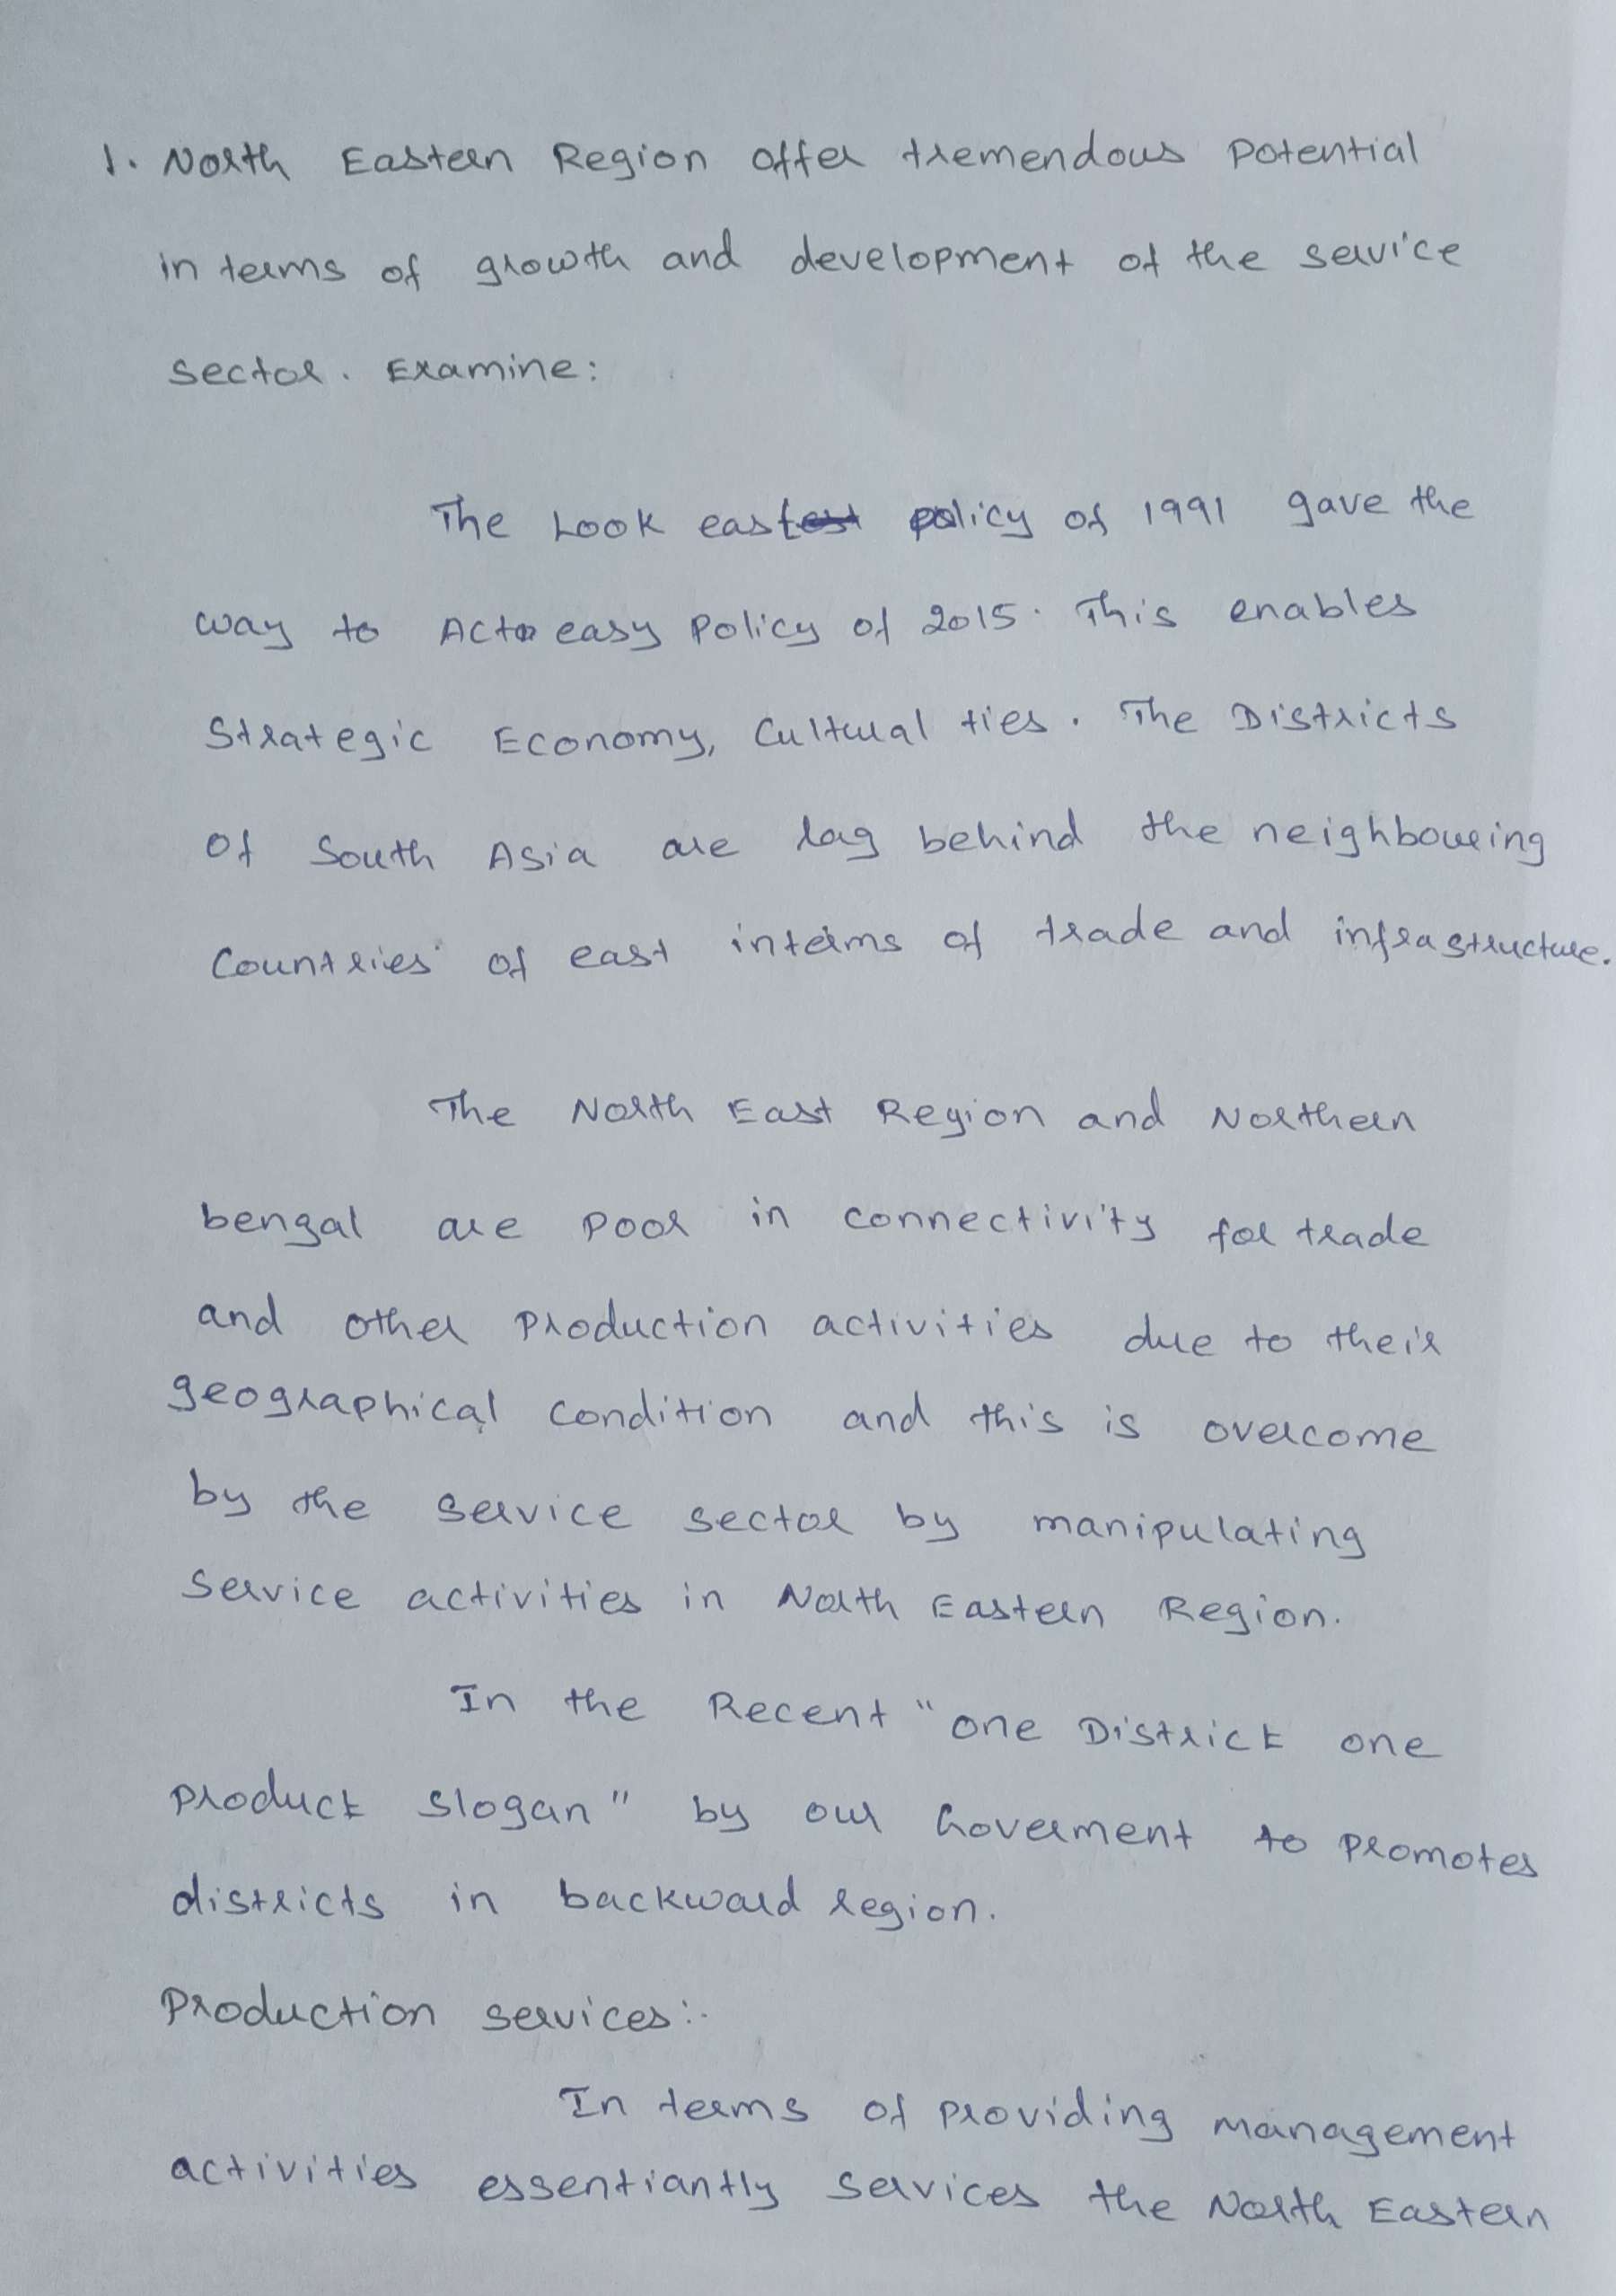 1. North Eastern Region offer tremendous potential
in terms of growth and development of the service
sector. Examine:
The Look east policy of 1991 gave the
way to Act easy policy of 2015. This enables
Strategic Economy, Cultural ties. The Districts
of South Asia are lag behind the neighbouring
Countries of east interms of trade and infrastructure.
The North East Region and Northern
bengal are poor in connectivity for trade
and other production activities due to their
geographical condition and this is overcome
by the service sector by manipulating
Service activities in North Eastern Region.
In the Recent "one District one
product slogan" by our Goverment to promotes
districts in backward region.
Production services:-
In terms of providing management
activities essentiantly services the North Eastern